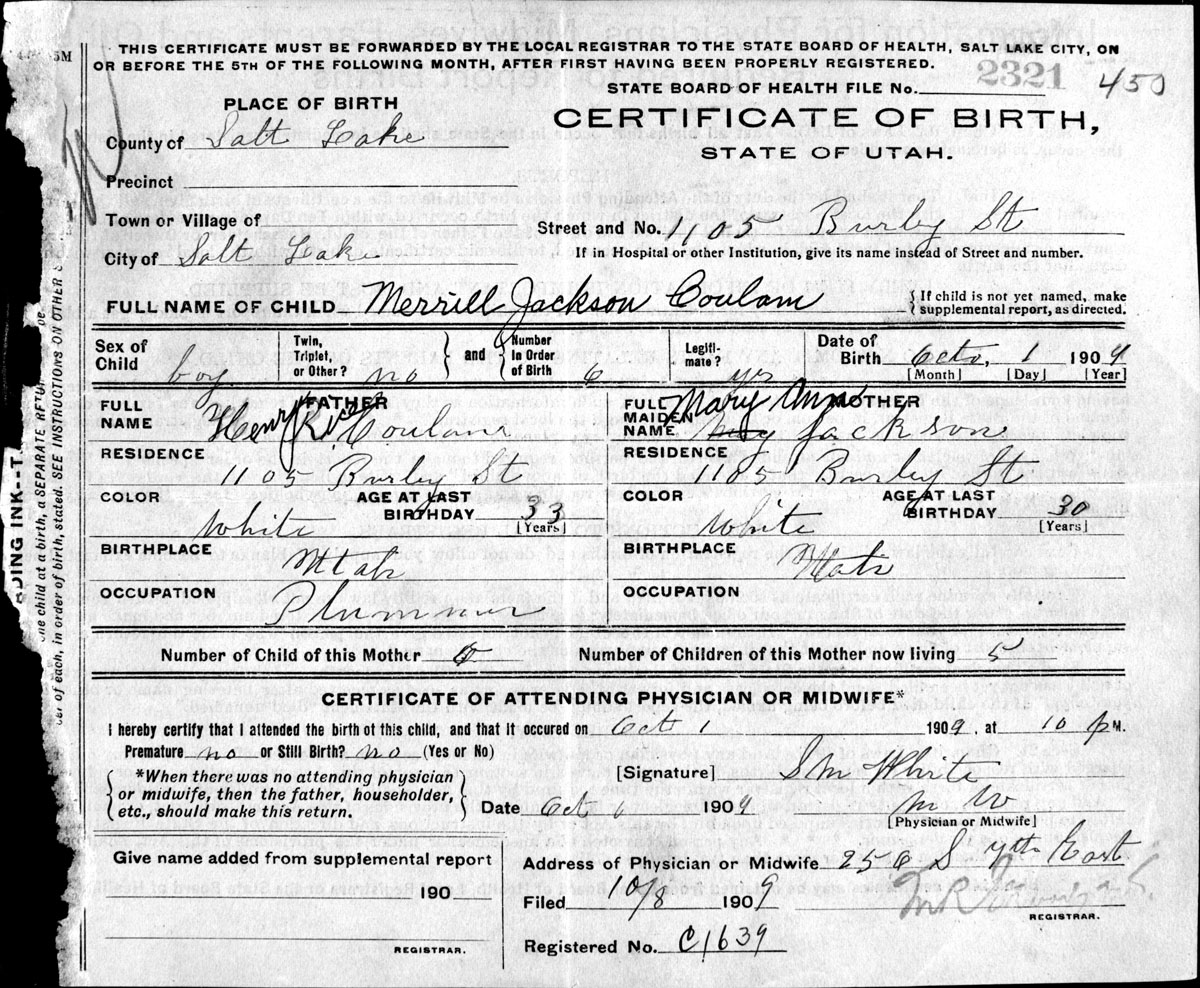 THIS CERTIFICATE MUST BE FORWARDED BY THE LOCAL REGISTRAR TO THE STATE BOARD OF HEALTH, SALT LAKE CITY, ON
OR BEFORE THE 5TH OF THE FOLLOWING MONTH, AFTER FIRST HAVING BEEN PROPERLY REGISTERED.
STATE BOARD OF HEALTH FILE No. 2321 450
PLACE OF BIRTH
CERTIFICATE OF BIRTH,
STATE OF UTAH.
County of Salt Lake
Precinct
Town or Village of
Street and No. 1105 Burly St
City of Salt Lake
If in Hospital or other Institution, give its name instead of Street and number.
FULL NAME OF CHILD Merrill Jackson Coulam
{If child is not yet named, make
supplemental report, as directed.
Sex of Child boy
Twin, Triplet, or Other? no } and { Number in Order of Birth 6
Legiti-mate? yes
Date of Birth Octo, 1 1909
[Month] [Day] [Year]
FATHER
FULL NAME Henry Coulam
MOTHER
FULL MAIDEN NAME Mary Jackson
RESIDENCE 1105 Burly St
RESIDENCE 1105 Burly St
COLOR White AGE AT LAST BIRTHDAY 33 [Years]
COLOR White AGE AT LAST BIRTHDAY 30 [Years]
BIRTHPLACE Utah
BIRTHPLACE Utah
OCCUPATION Plummer
OCCUPATION
Number of Child of this Mother 6 Number of Children of this Mother now living 5
CERTIFICATE OF ATTENDING PHYSICIAN OR MIDWIFE*
I hereby certify that I attended the birth of this child, and that it occured on Oct 1 1909, at 10 P M.
Premature no or Still Birth? no (Yes or No)
{*When there was no attending physician
or midwife, then the father, householder,
etc., should make this return.}
[Signature] S M White
Date Oct 1909 M W
[Physician or Midwife]
Give name added from supplemental report
190
REGISTRAR.
Address of Physician or Midwife 256 S 7th East
Filed 10/8 1909
REGISTRAR.
Registered No. C1639